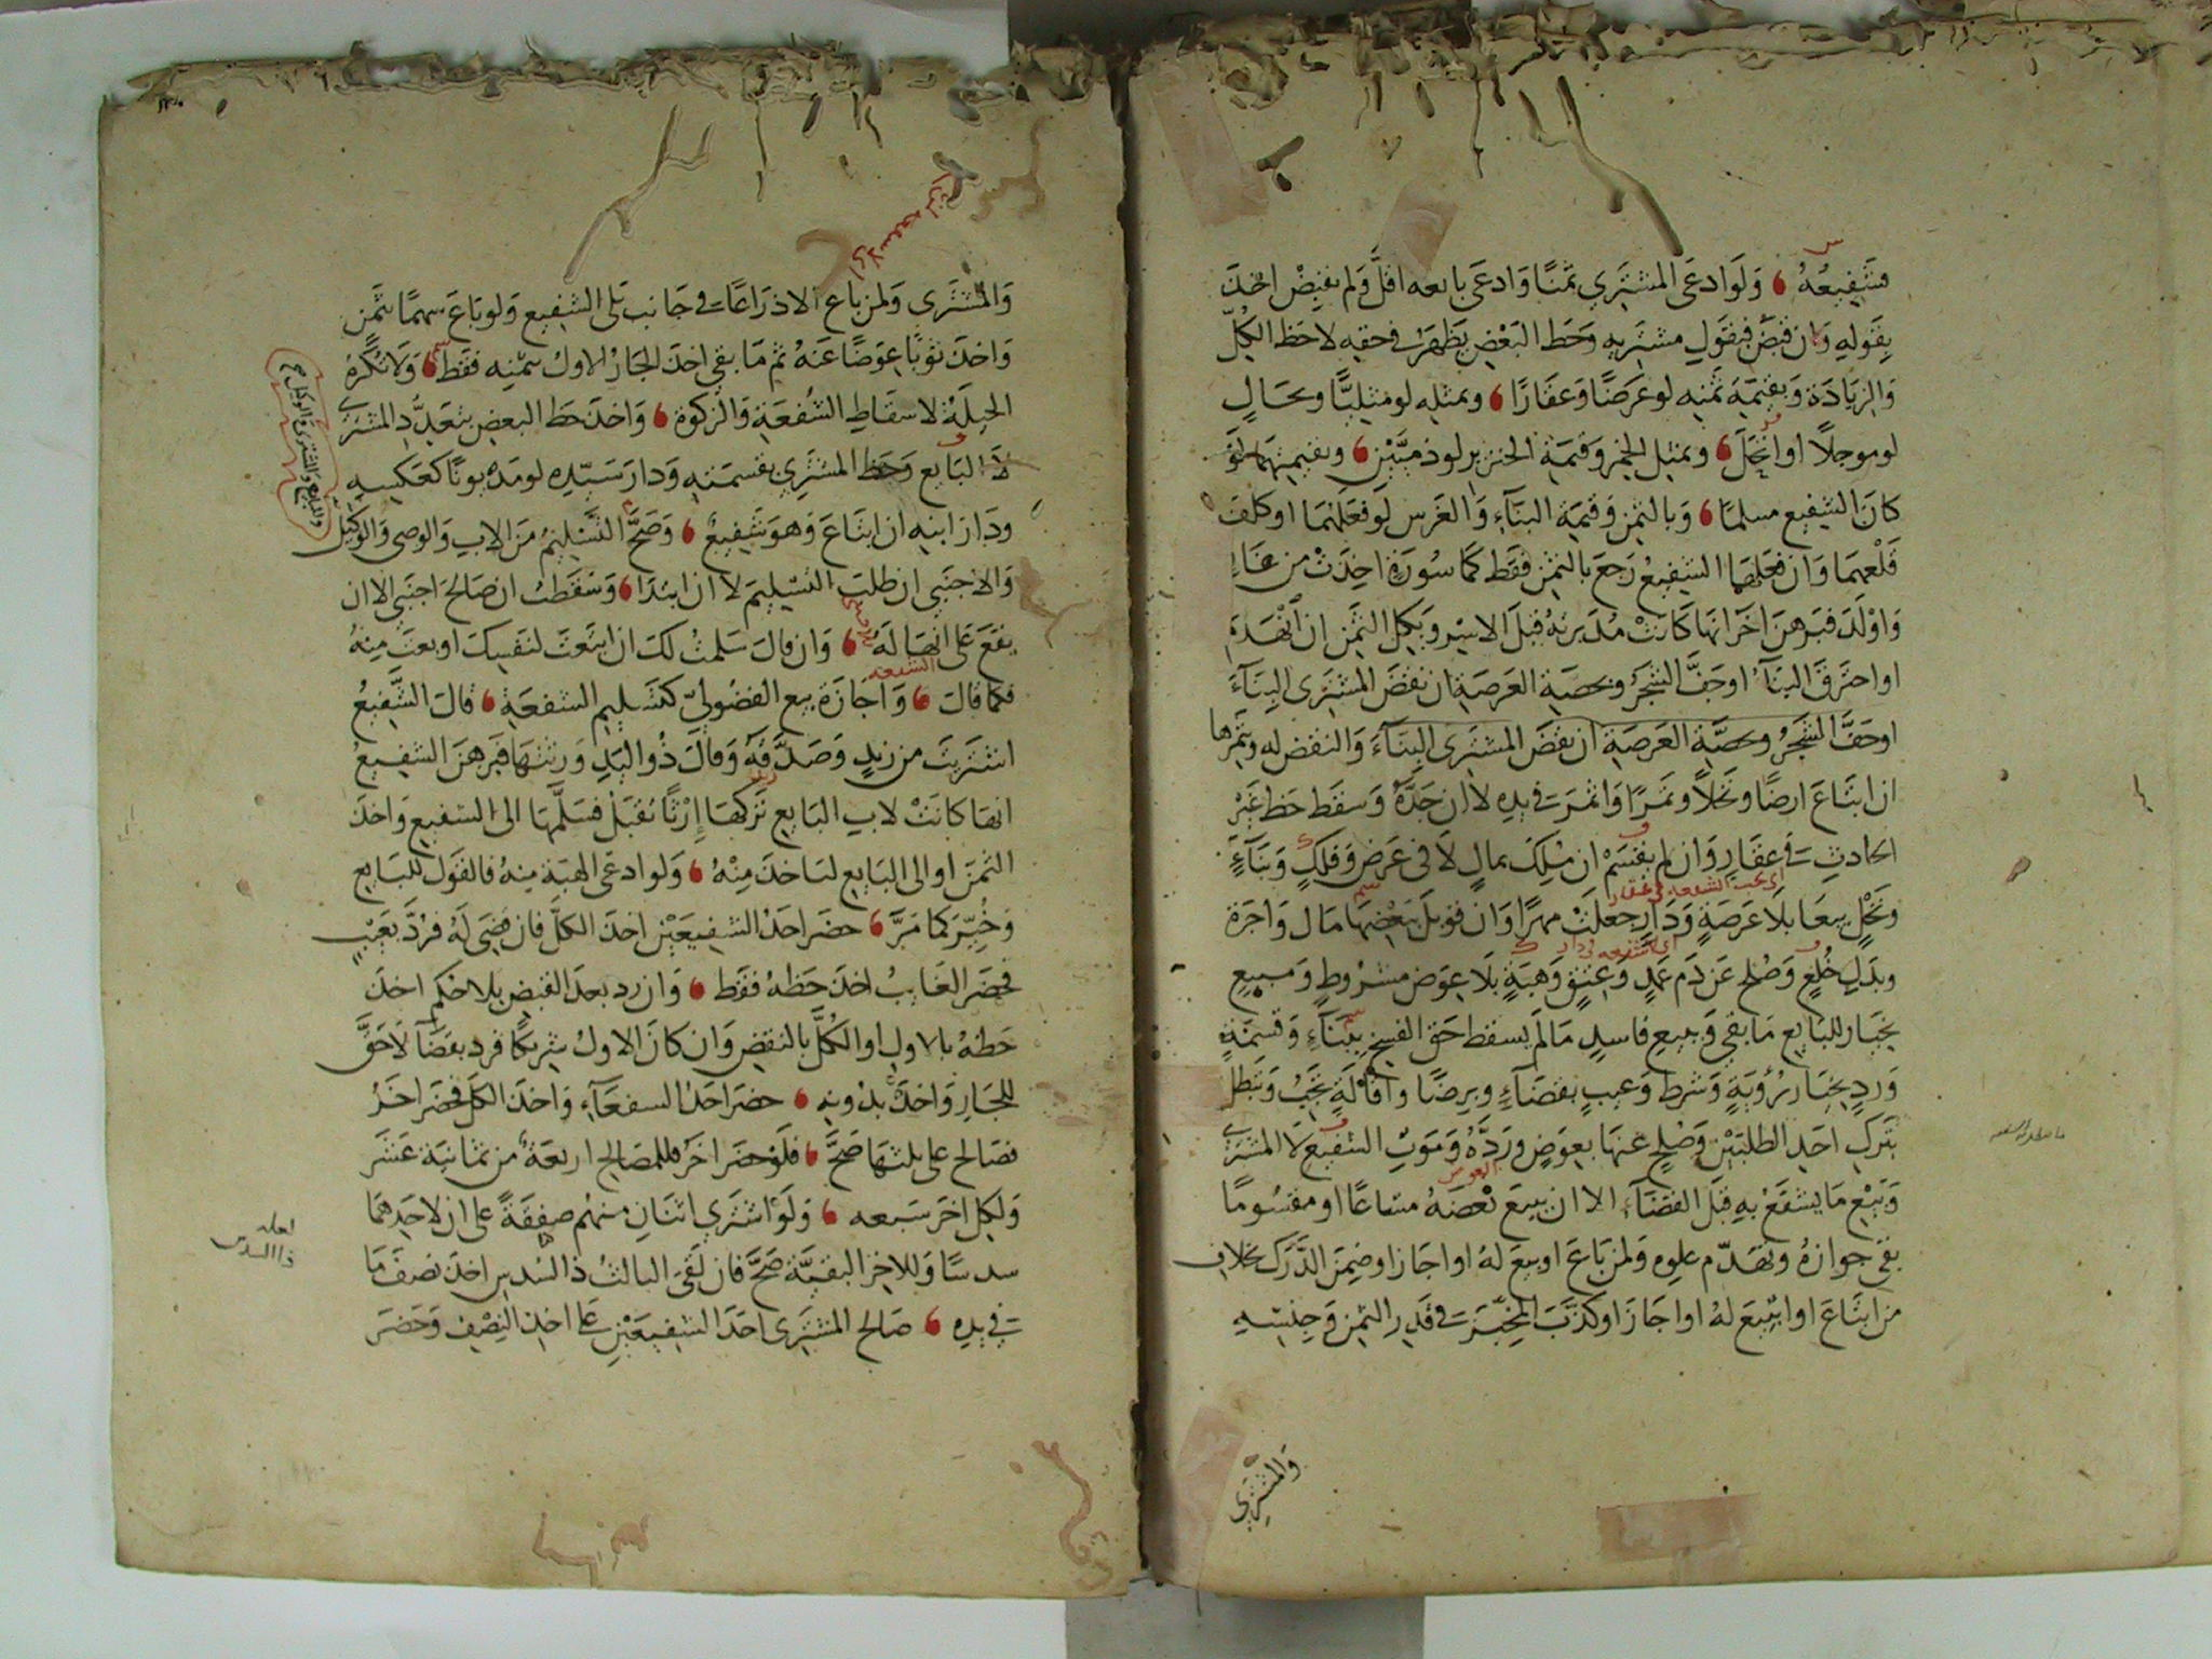 فشفيعه ولو ادعى المشتري ثمنا وادعى بايعه اقل ولم يقبض اخذ
بقوله وان قبض فبقول مشتريه وحط البعض يظهر في حقه لا حط الكل
والزيادة وبقيمة ثمنه لو عرضا وعقارا وبمثله لو مثليا وبحال
لو موجلا او انجل وبمثل الخمر وقيمة الخنزير لو ذميين وبقيمتهما لو
كان الشفيع مسلما وبالثمن وقيمة البناء والغرس لو فعلهما او كلف
قلعهما وان فعلهما الشفيع رجع بالثمن فقط كماسورة اخذت من غاز
واولد فبرهن اخر انها كانت مدبرته قبل الاسر وبكل الثمن ان انهدم
او احترق البناء او جف الشجر وبحصة العرصة ان نقض المشترى البناء
او جف الشجر وبحصة العرصة ان نقض المشترى البناء والنقض له وبثمرها
ان ابتاع ارضا ونخلا وثمرا او اثمرت في يده لا ان جده وسقط حظ غير
الحادث في عقار وان لم يقسم ان ملك بمال لا في عرض وفلك وبناء
اي يجب الشفعة في عقار
ونخل بيعا بلا عرصة ودار جعلت مهرا وان قوبل ببعضها مال واجرة
وبدل خلع وصلح عن دم عمد وعتق وهبة بلا عوض مشروط ومبيع
بخيار للبايع ما بقي وبيع فاسد مالم يسقط حق الفسخ ببناء وقسمة
ورد بخيار رؤية وشرط وعيب بقضاء وبرضا واقالة يجب وتبطل
بترك احد الطلبين وصلح عنها بعوض ورده وموت الشفيع لا المشتري
العوض
وبيع ما يشفع به قبل القضاء الا ان يبيع بعضه مشاعا او مقسوما
بقى جوازه وتقدم علوه ولمن باع او بيع له او اجاز او ضمن الدرك بخلاف
من ابتاع او ابتيع له او اجاز او كذب المخبر في قدر الثمن وجنسه
والمشتري
والمشترى ولمن باع الا ذراعا في جانب يلى الشفيع ولو باع سهما بثمن
واخذ ثوبا عوضا عنه ثم ما بقي اخذ الجار الاول بثمنه فقط ولا تكره
الحيلة لاسقاط الشفعة والزكوة واخذ حظ البعض بتعدد المشترى
لا البايع وحظ المشتري بقسمته ودار سيده لو مديونا كعكسه
ودار ابنه ان ابتاع وهو شفيع وصح التسليم من الاب والوصى والوكيل
والاجنبي ان طلب التسليم لا ان ابتدا وسقطت ان صالح اجنبي الا ان
يقع على انها له وان قال سلمت لك ان ابتعت لنفسك او بعت منه
الشفعة
فكما قال واجازة بيع الفضولي كتسليم الشفعة قال الشفيع
اشتريت من زيد وصدقه وقال ذو اليد ورثتها فبرهن الشفيع
انها كانت لاب البايع تركها ارثا تقبل فسلمها الى الشفيع واخذ
الثمن او الى البايع لياخذ منه ولو ادعى الهبة منه فالقول للبايع
وخير كما مر حضر احد الشفيعين اخذ الكل فان قضى له فرد بعيب
فحضر الغايب اخذ حظه فقط وان رد بعد القبض بلا حكم اخذ
حظه بالاول او الكل بالنقض وان كان الاول شريكا فرد بقضا لا حق
للجار واخذ بدونه حضر احد السفعاء واخذ الكل فحضر اخر
فصالح على ثلثها صح فلو حضر اخر فللمصالح اربعة من ثمانية عشر
ولكل اخر سبعه ولو اشترى اثنان منهم صفقة على ان لاحدهما
سدسا وللاخر البقية صح فان لقى الثالث ذا السدس اخذ نصف ما
في يده صالح المشترى احد الشفيعين على اخذ النصف وحضر